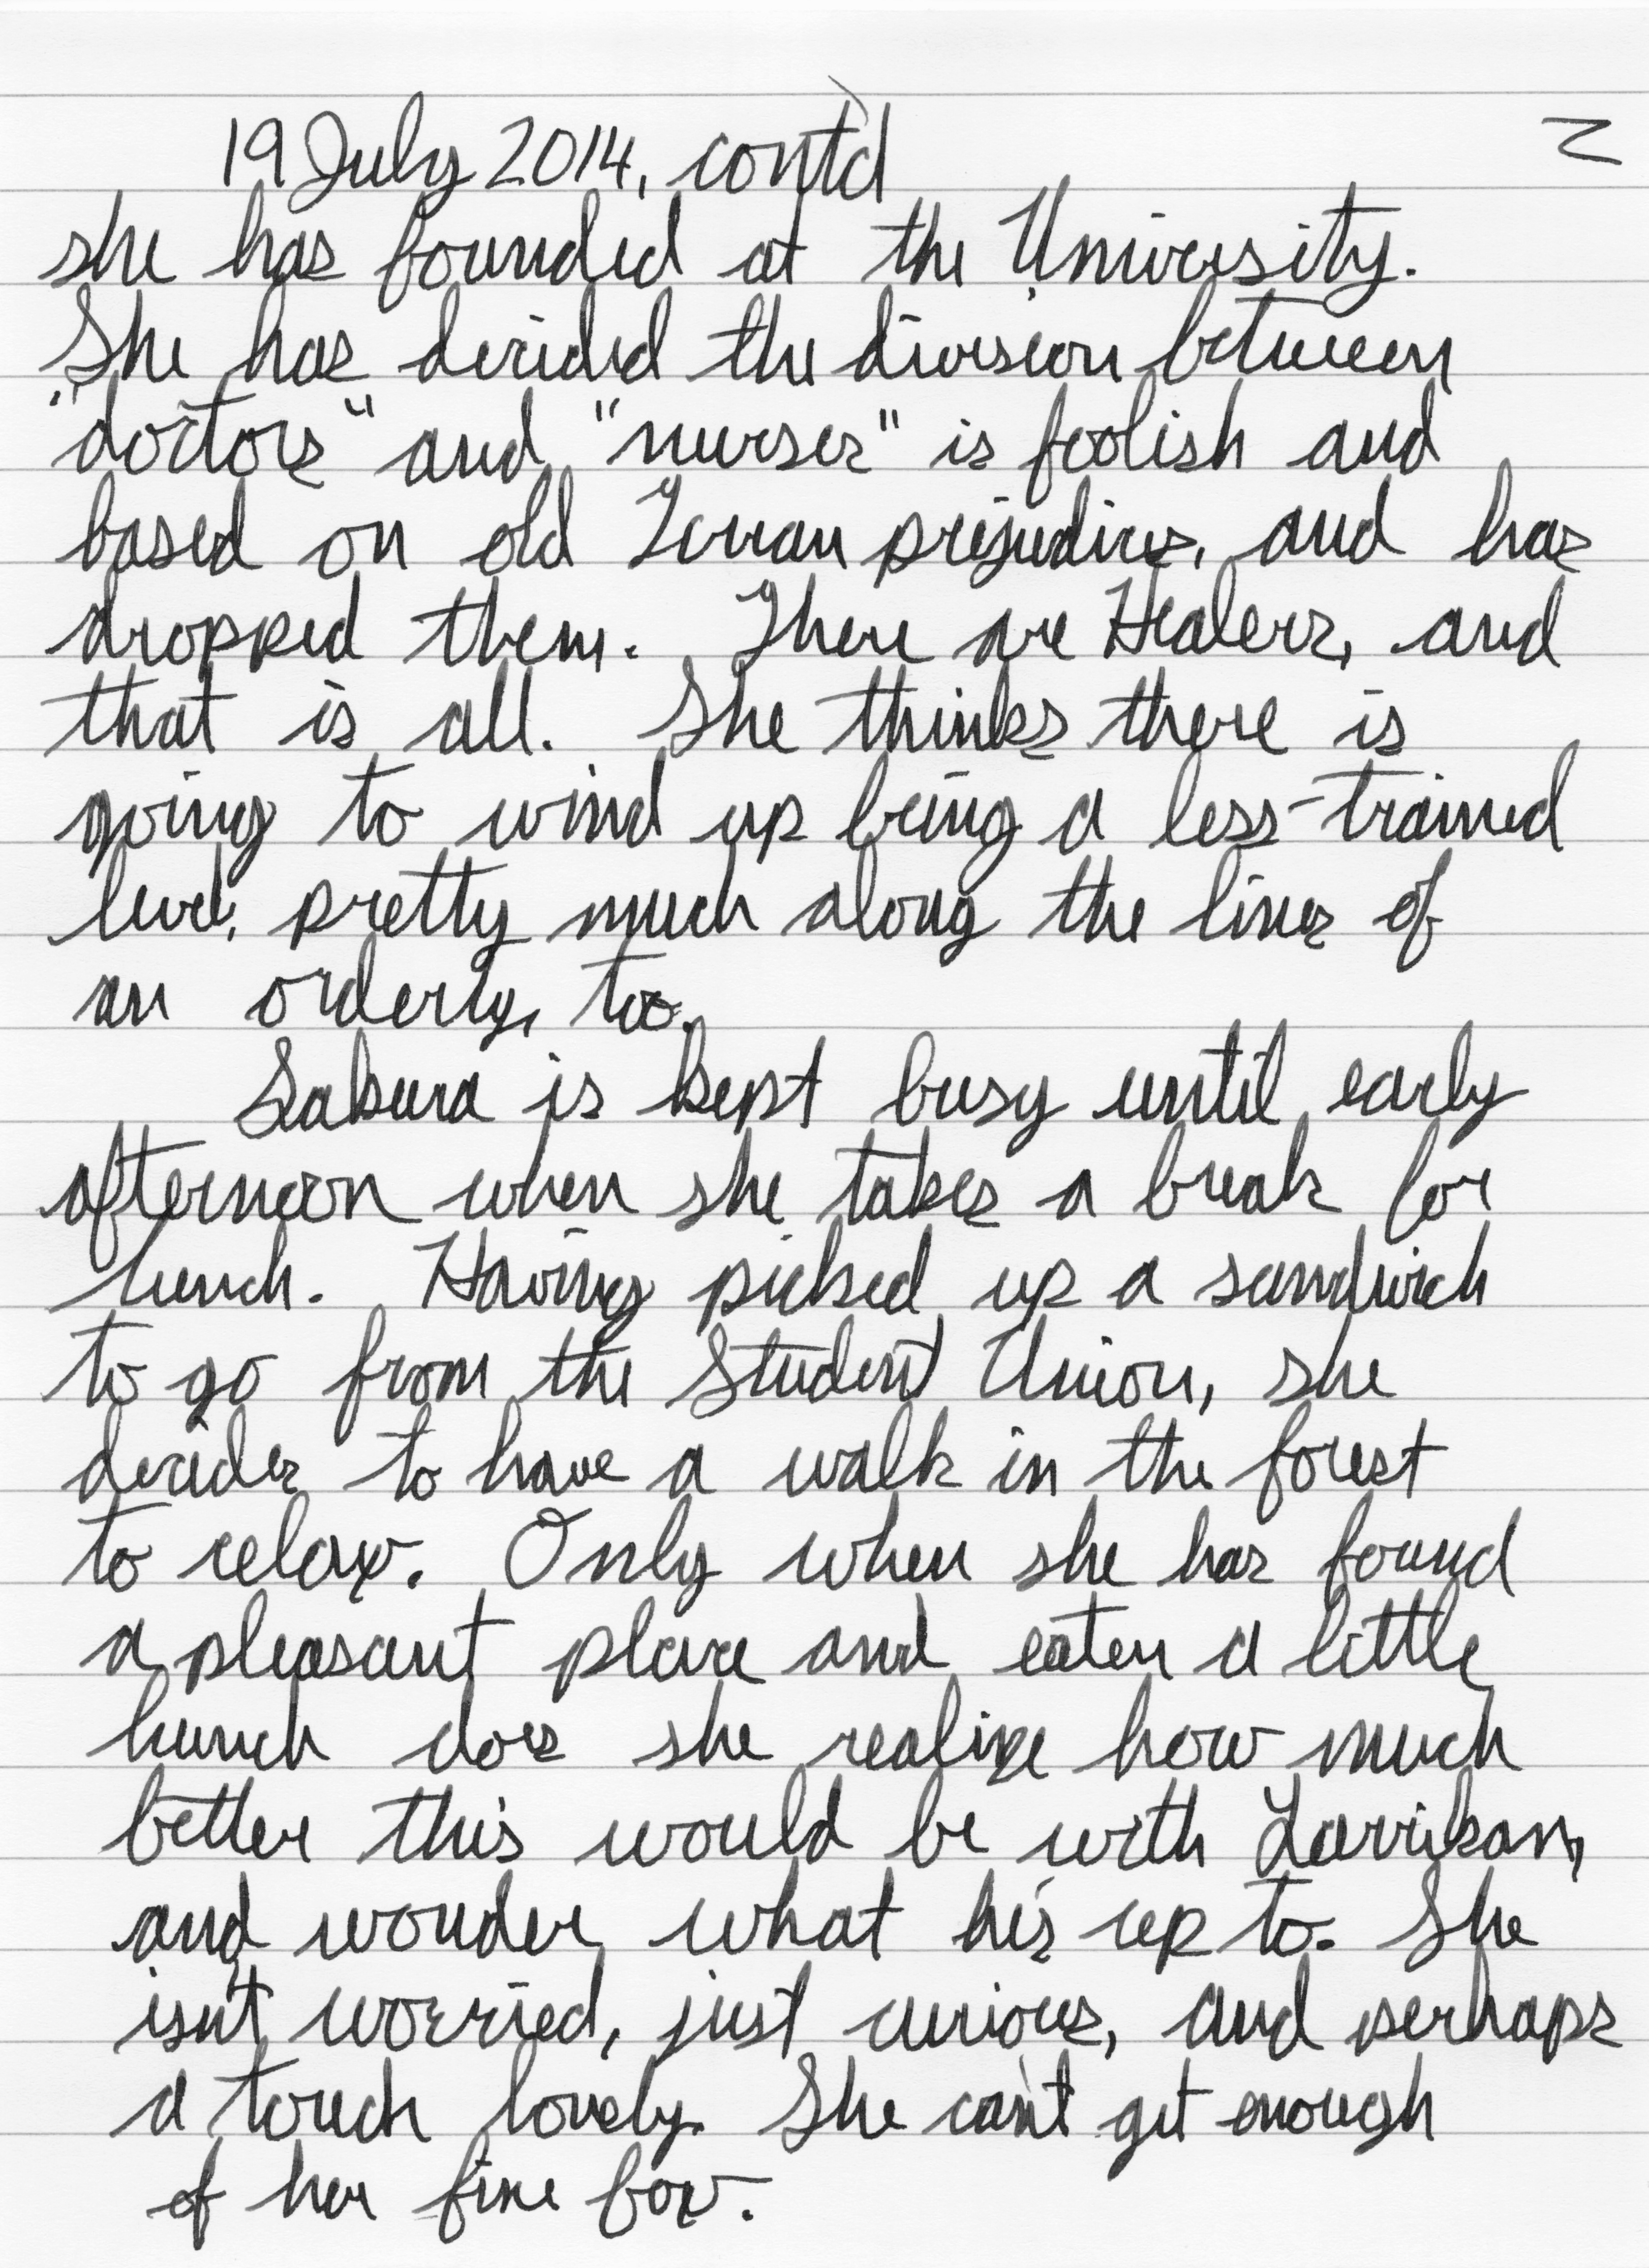 19 July 2014, cont'd 2
she has founded at the University.
She has decided the division between
"doctors" and "nurses" is foolish and
based on old Terran prejudices, and has
dropped them. There are Healers, and
that is all. She thinks there is
going to wind up being a less-trained
level, pretty much along the lines of
an orderly, too.
Sakura is kept busy until early
afternoon when she takes a break for
lunch. Having picked up a sandwich
to go from the Student Union, she
decides to have a walk in the forest
to relax. Only when she has found
a pleasant place and eaten a little
lunch does she realize how much
better this would be with Larrikan,
and wonder what he's up to. She
isn't worried, just curious, and perhaps
a touch lovely. She can't get enough
of her fine fox.